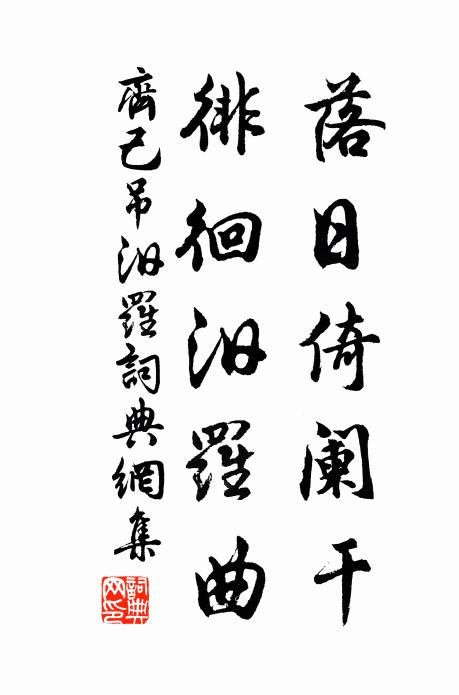 落日倚阑干
徘徊汨羅曲
齊己吊汨羅詞典網集
詞典网印